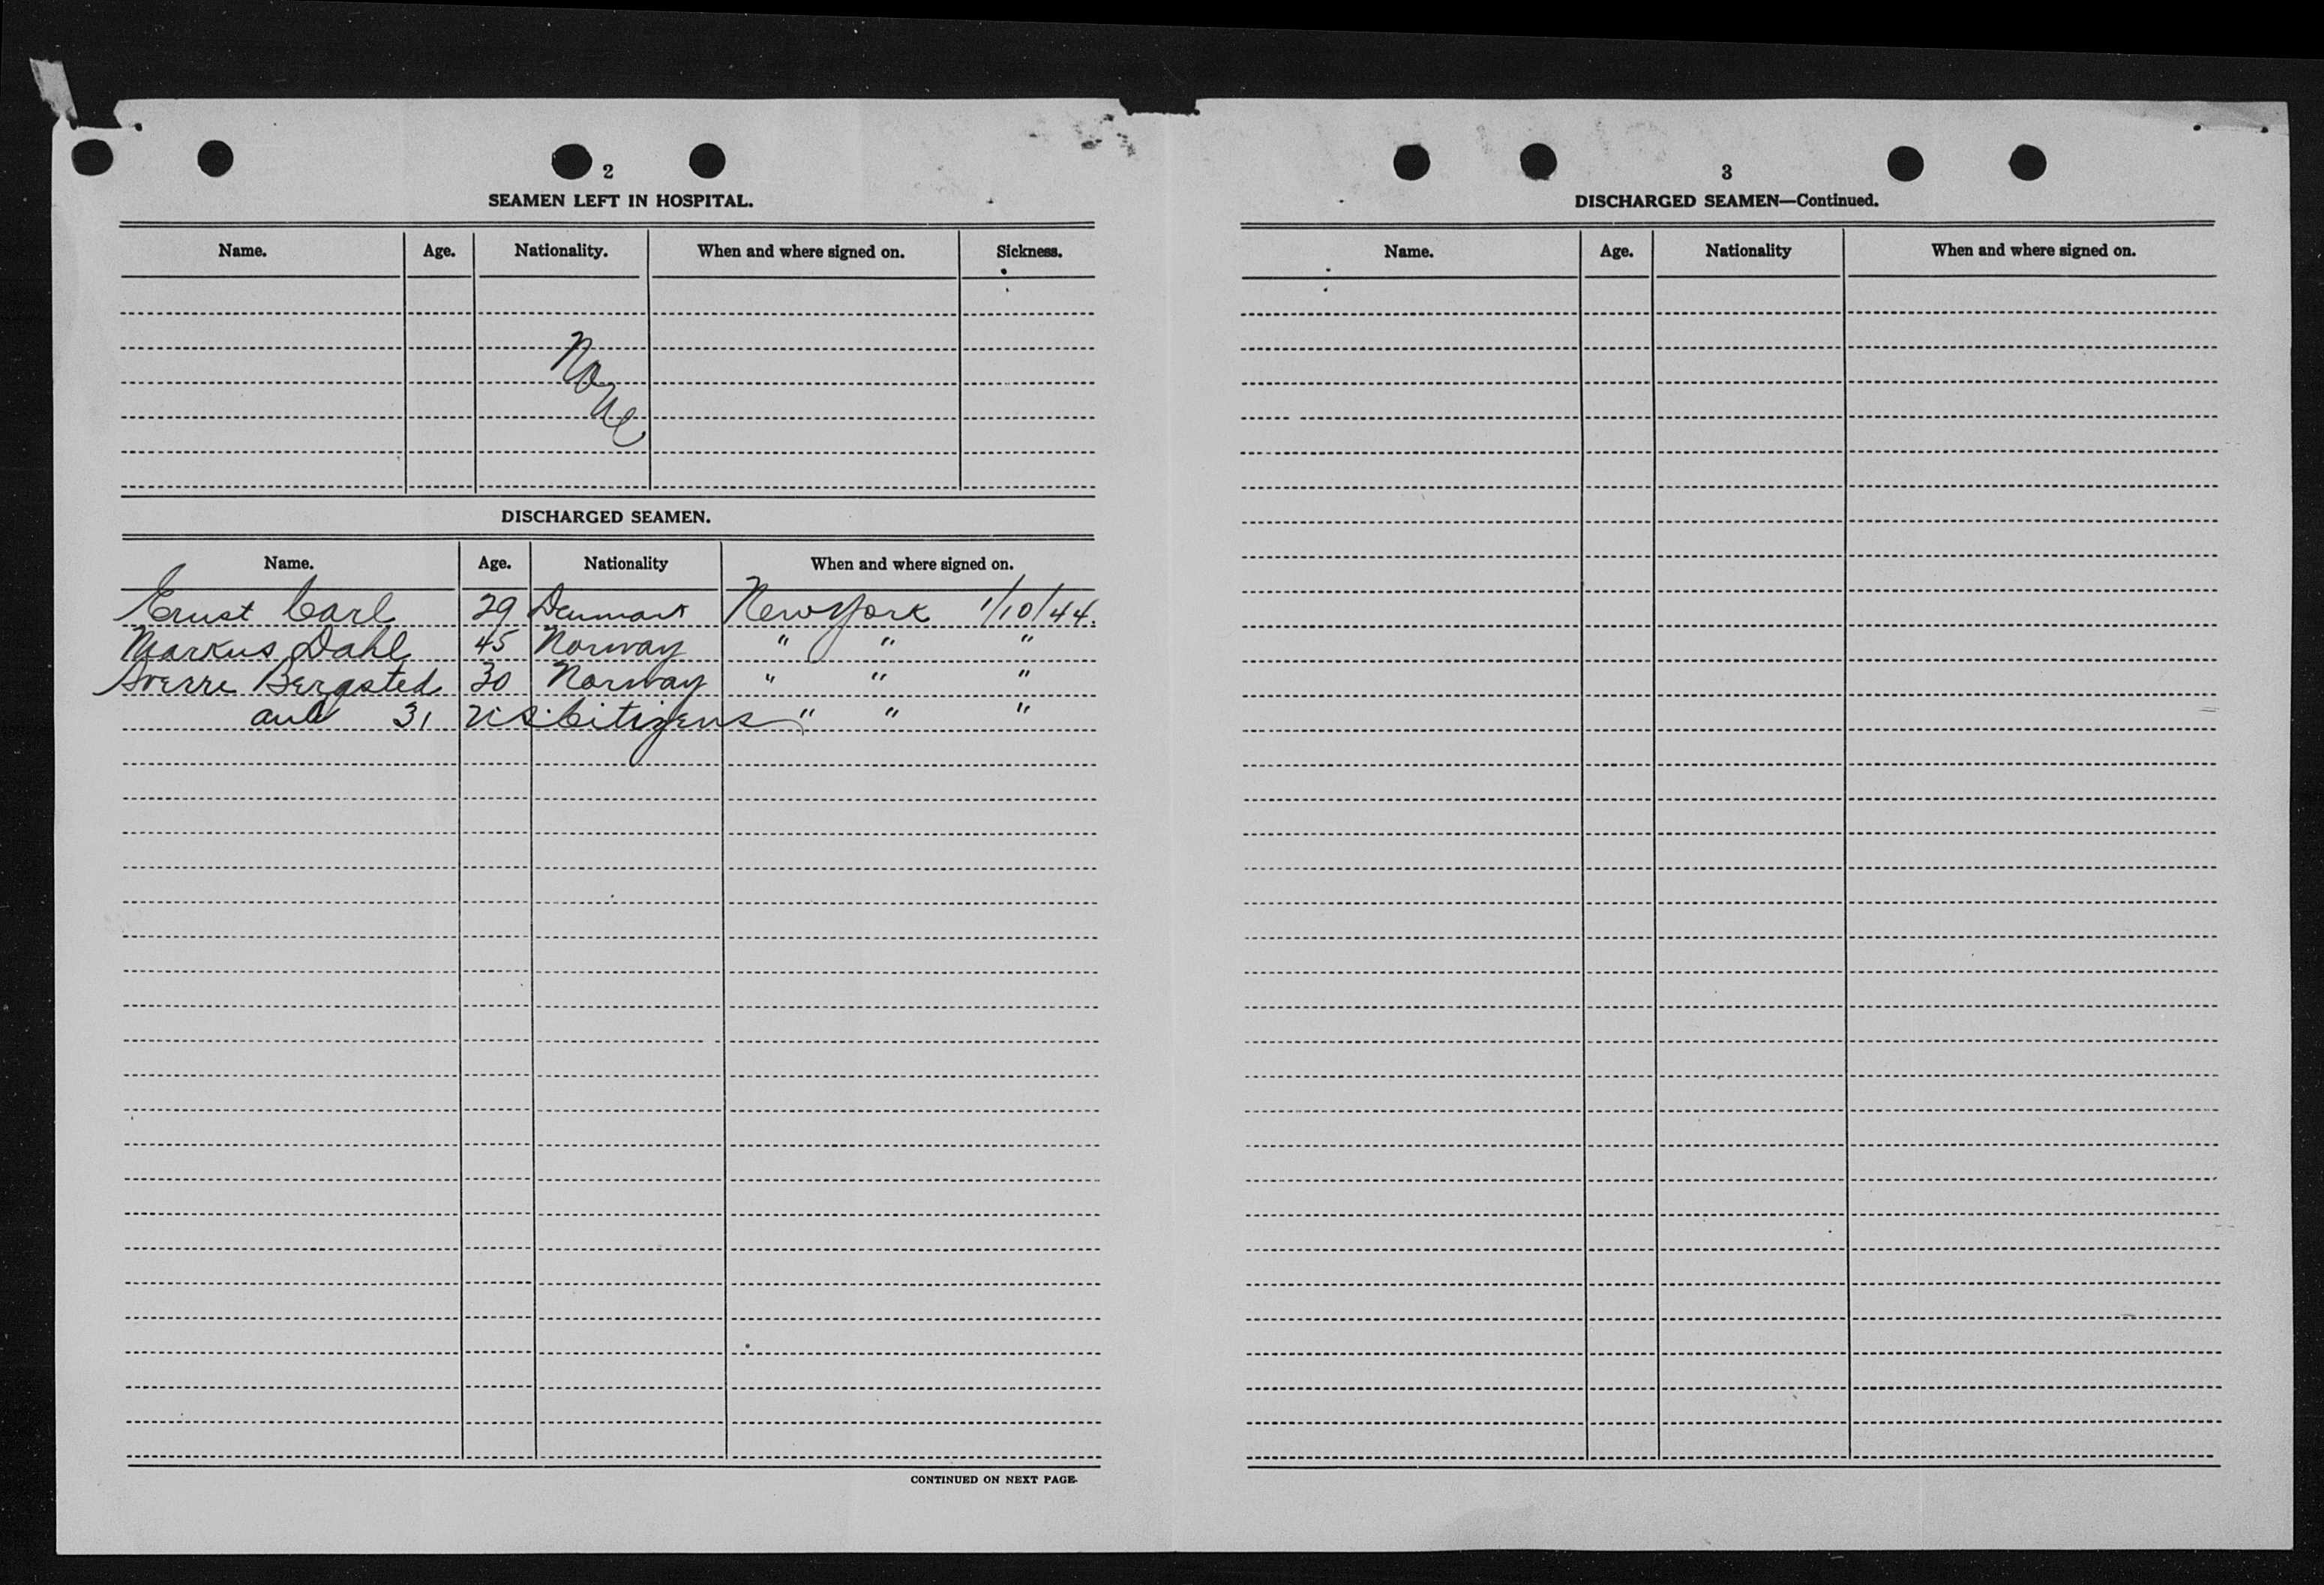 2
SEAMEN LEFT IN HOSPITAL.
Name. Age. Nationality. When and where signed on. Sickness.
None
DISCHARGED SEAMEN.
Name. Age. Nationality When and where signed on.
Ernst Carl 29 Denmark New York 1/10/44.
Markus Dahl 45 Norway " " "
Sverre Bergsted 30 Norway " " "
and 31 U.S. Citizens " " "
CONTINUED ON NEXT PAGE.
3
DISCHARGED SEAMEN—Continued.
Name. Age. Nationality When and where signed on.